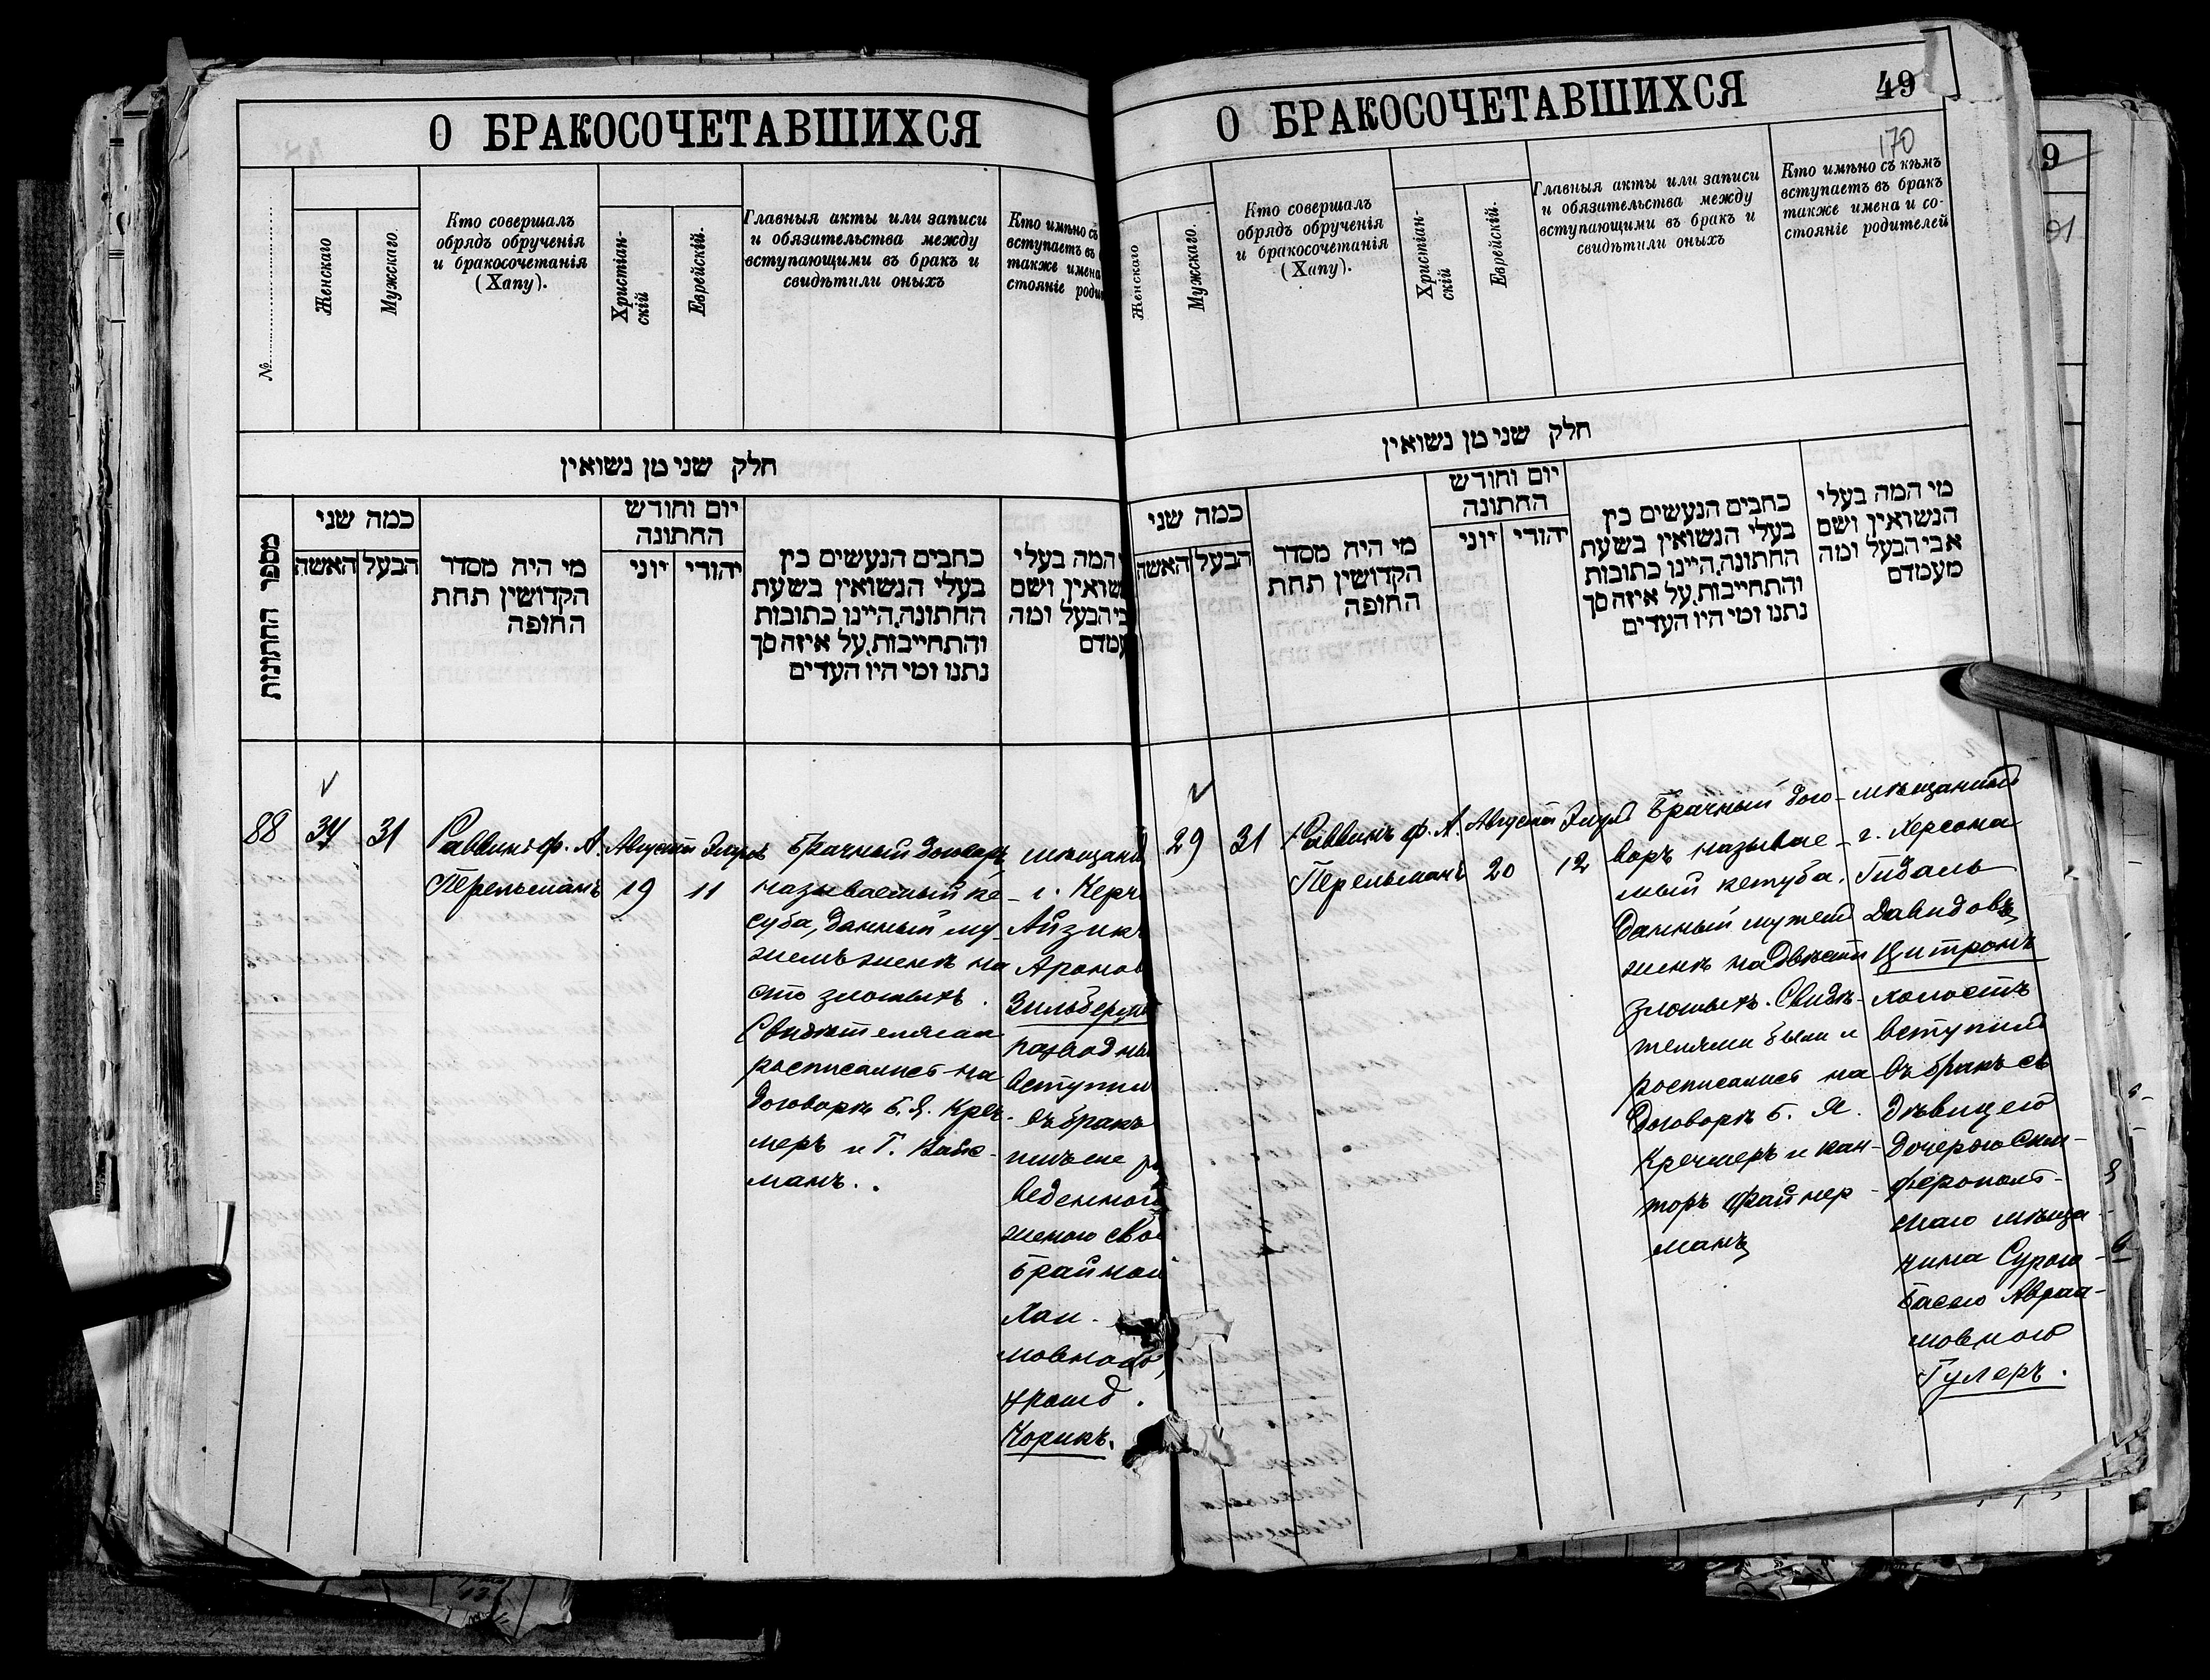 О БРАКОСОЧЕТАВШИХСЯ
№
Женскаго
Мужскаго.
Кто совершалъ
обрядъ обрученія
и бракосочетанія
(Хапу).
Христіан-
скій
Еврейскій.
Главныя акты или записи
и обязательства между
вступающими въ бракъ и
свидѣтили оныхъ
Кто имѣно съ
вступаетъ въ
также имена
стояніе роди
חלק שני מן נשואין
מספר החתונות
כמה שני
האשה
הבעל
מי היה מסדר
הקדושין תחת
החופה
יום וחודש
החתונה
יוני
יהודי
כתבים הנעשים בין
בעלי הנשואין בשעת
החתונה, היינו כתובות
והתחייבות, על איזה סך
נתנו ומי היו העדים
המה בעלי
שואין ושם
בי הבעל ומה
עמדם
88
34
31
Раввинъ ф. А.
Перельманъ
Августъ
19
Элулъ
11
Брачный договоръ
называемый ке-
суба, данный му-
жемъ женѣ на
сто злотыхъ.
Свидѣтелями
росписались на
договорѣ Б. Я. Креч-
меръ и Г. Вайс-
манъ.
мѣщани
г. Керч
Айзикъ
Аронов
Зильбер
разводны
вступил
въ бракъ
ведениой
женою сво
Брайной
Хаи-
мовною,
урожд.
Корикъ.
О БРАКОСОЧЕТАВШИХСЯ
49
170
Женскаго
Мужскаго.
Кто совершалъ
обрядъ обрученія
и бракосочетанія
(Хапу).
Христіан-
скій
Еврейскій.
Главныя акты или записи
и обязательства между
вступающими въ бракъ и
свидѣтили оныхъ
Кто имѣно съ кѣмъ
вступаетъ въ бракъ
также имена и со-
стояніе родителей
חלק שני מן נשואין
כמה שני
האשה
הבעל
מי היה מסדר
הקדושין תחת
החופה
יום וחודש
החתונה
יוני
יהודי
כתבים הנעשים בין
בעלי הנשואין בשעת
החתונה, היינו כתובות
והתחייבות, על איזה סך
נתנו ומי היו העדים
מי המה בעלי
הנשואין ושם
אבי הבעל ומה
מעמדם
29
31
Раввинъ ф. А.
Перельманъ
Августъ
20
Элулъ
12
Брачный дого-
воръ называе-
мый кетуба,
данный мужемъ
женѣ на двѣсти
злотыхъ. Свидѣ-
телями были и
росписались на
договорѣ Б. Я.
Кречмеръ и кан-
торъ Файнер-
манъ
мѣщанинъ
г. Херсона
Гидаль
Давидовъ
Цитронъ
холостъ
вступилъ
въ бракъ съ
дѣвицею
дочерью Сим-
феропольс-
каго мѣща-
нина Сурою-
Басею Авраа-
мовною
Гулеръ.
9
91